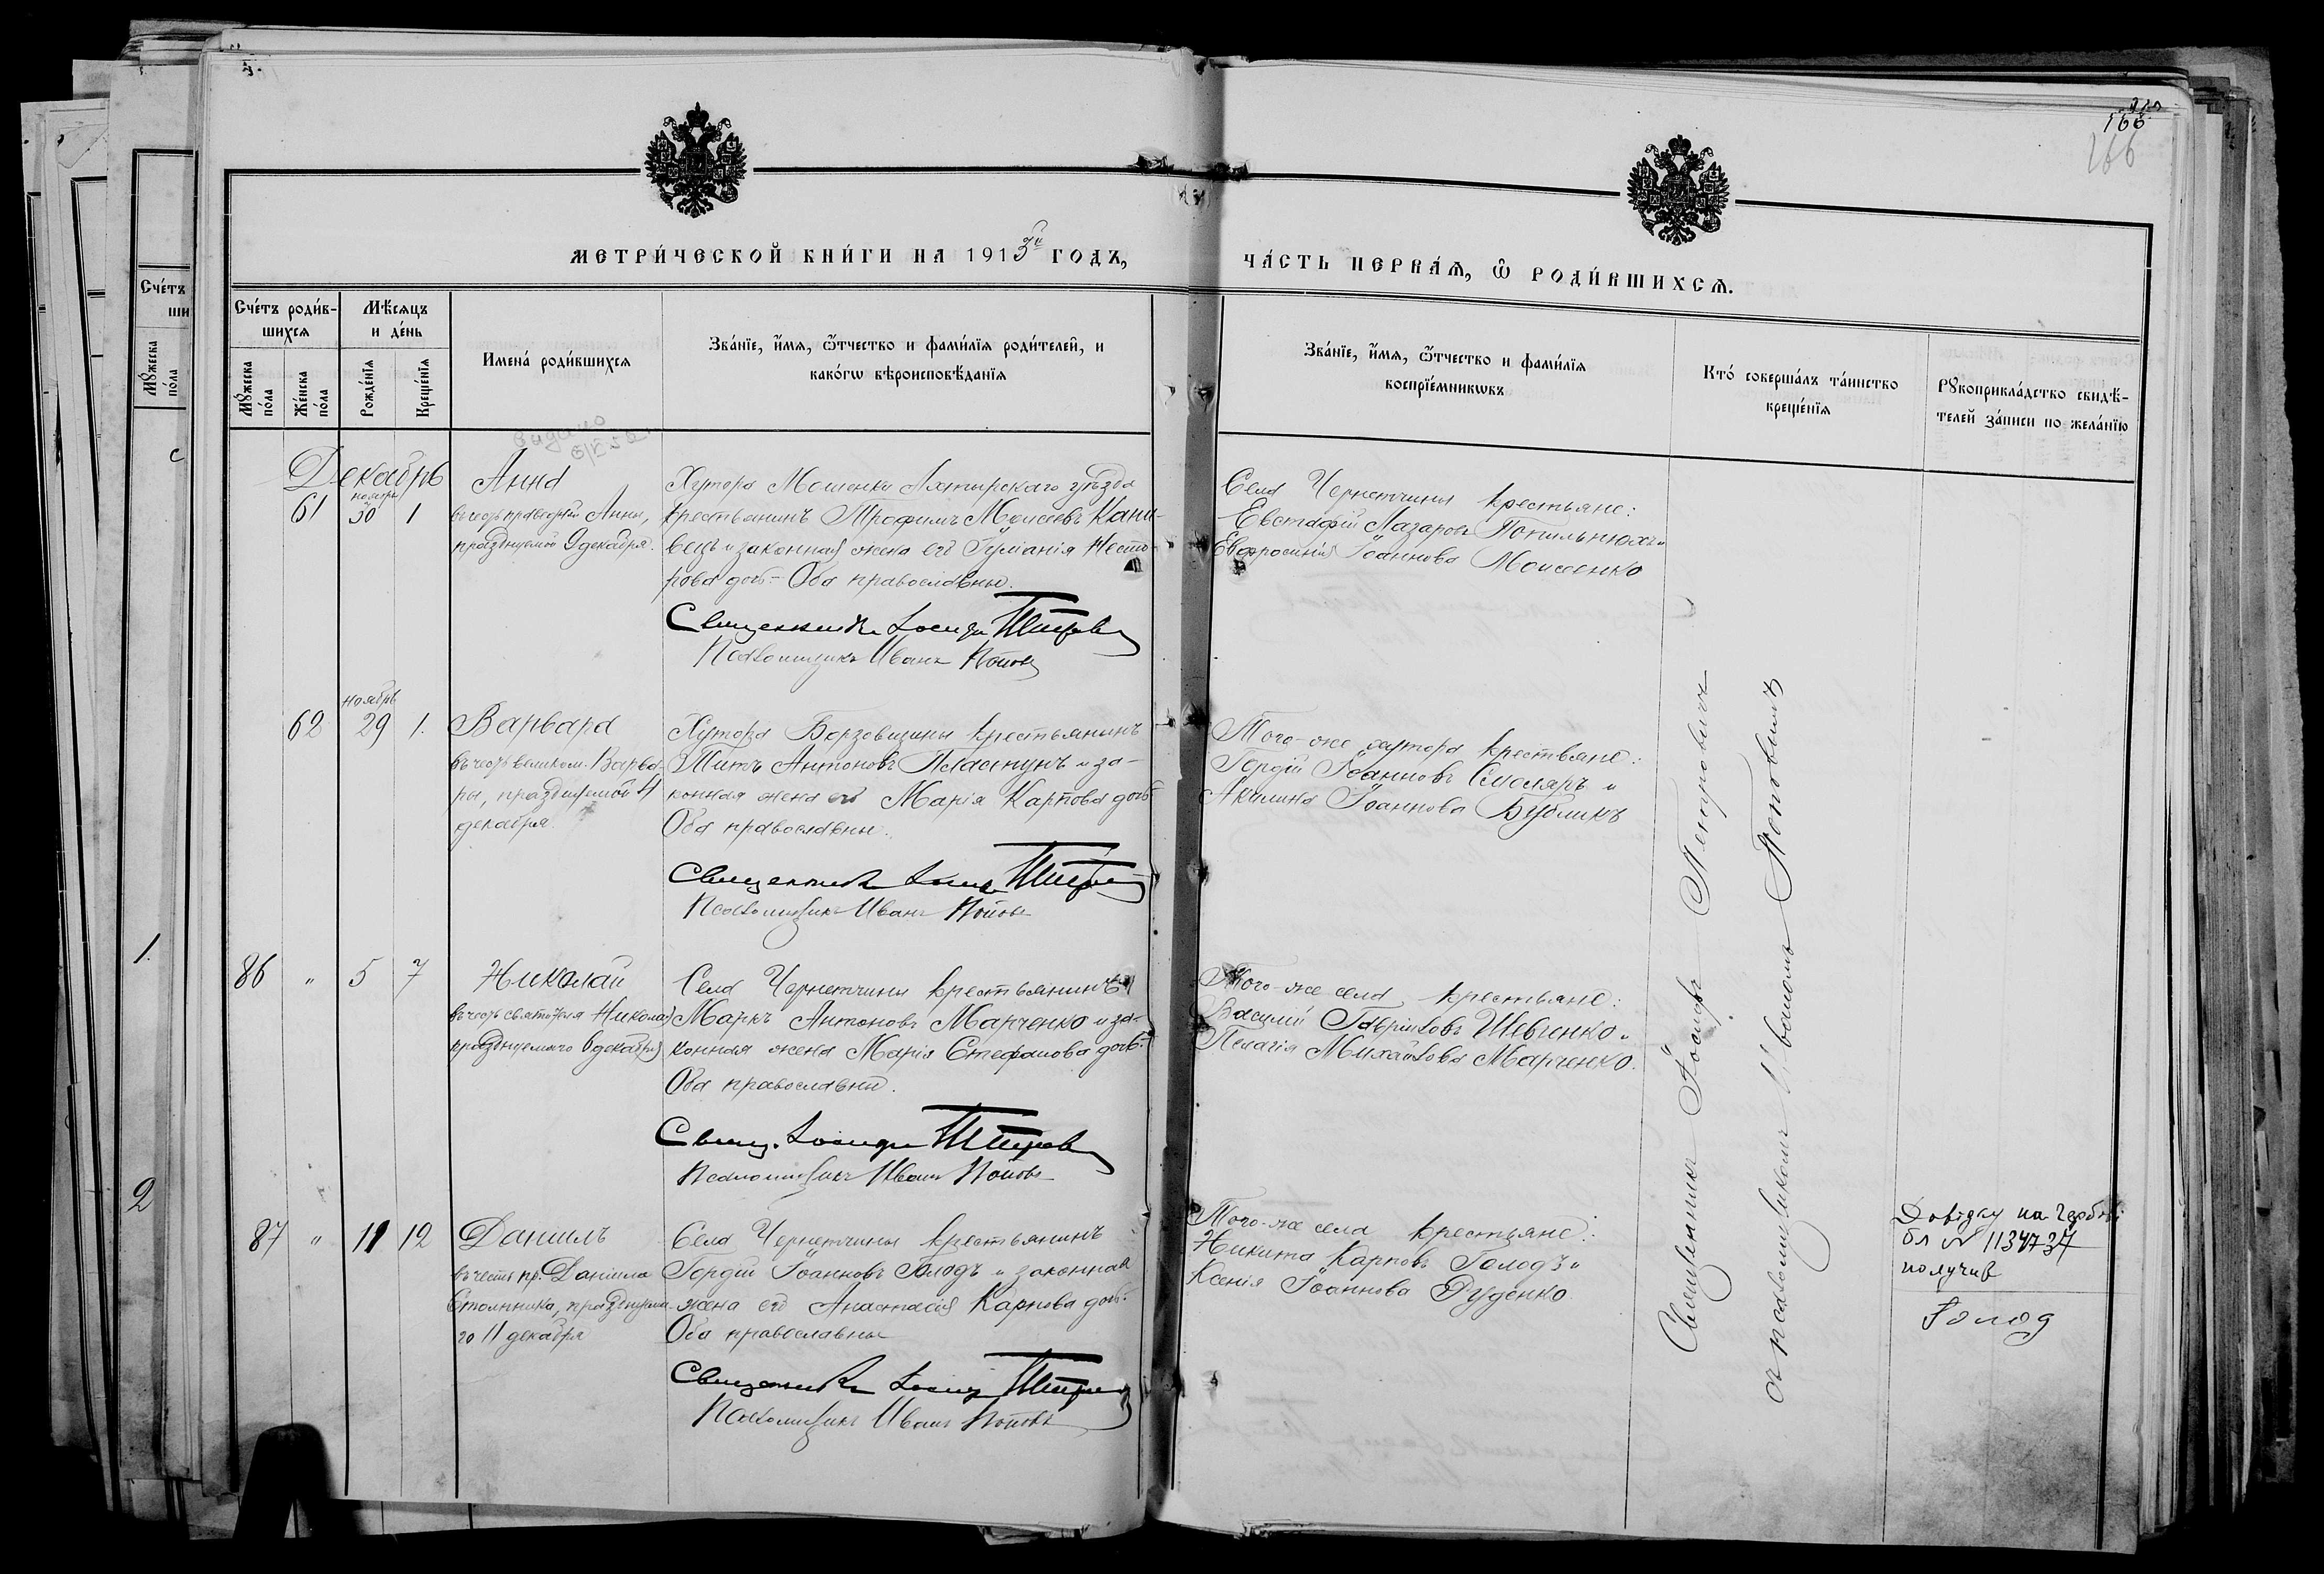 166
266
МЕТРИ́ЧЕСКОЙ КНИ́ГИ НА 1913й ГОДЪ,
ЧА́СТЬ ПЕРВА́Ѧ, Ѡ҆ РОДИ́ВШИХСѦ.
Сче́тъ роди́в-
шихсѧ
Мꙋ́жеска по́ла
Же́нска по́ла
Мѣ́сѧцъ
и де́нь
Рожде́нїѧ
Креще́нїѧ
Имена́ роди́вшихсѧ
Зва́нїе, и҆́мѧ, ѻ҆́тчество и фами́лїѧ роди́телей, и
како́гѡ вѣроисповѣ́данїѧ
Зва́нїе, и҆́мѧ, ѻ҆́тчество и фами́лїѧ
воспрїе́мникѡвъ
Кто́ соверша́лъ та́инство
креще́нїѧ
Рꙋкоприкла́дство свидѣ́-
телей за́писи по жела́нїю
Декабрь
61
ноябрь
30
1
Анна
въ честь праведной Анны,
празднуемой 9 декабря.
Хутора Мошенки Ахтырскаго уѣзда
крестьянинъ Трофимъ Моисеевъ Кани-
вецъ и законная жена его Іуліанія Несто-
рова дочь - Оба православные.
Священникъ Іосифъ
Псаломщикъ Иванъ Поповъ
Села Чернетчины крестьяне:
Евстафій Лазаревъ Попильнюхъ и
Евфросинія Іоаннова Моисеенко
62
ноябрь
29
1.
Варвара
въ честь великом. Варва-
ры, празднуемой 4
декабря.
Хутора Борзовщины крестьянинъ
Титъ Антоновъ Пластунъ и за-
конная жена его Марія Карпова дочь
Оба православные.
Священникъ Іосифъ
Псаломщикъ Иванъ Поповъ
Того-же хутора крестьяне:
Гордій Іоанновъ Смоляръ и
Акилина Іоаннова Бубликъ
86
"
5
7
Николай
въ честь святителя Николая
празднуемаго 6 декабря
Села Чернетчины крестьянинъ
Маркъ Антоновъ Марченко и за-
конная жена Марія Стефанова дочь.
Оба православные.
Свящ. Іосифъ
Псаломщикъ Иванъ Поповъ
Того-же села крестьяне:
Василій Гавріиловъ Шевченко и
Пелагія Михайлова Марченко.
87
"
11
12
Даніилъ
въ честь пр. Даніила
Столпника, празднуема-
го 11 декабря
Села Чернетчины крестьянинъ
Гордій Іоанновъ Голодъ и законная
жена его Анастасія Карпова дочь.
Оба православные
Священникъ Іосифъ
Псаломщикъ Иванъ Поповъ
Того-же села крестьяне:
Никита Карповъ Голодъ и
Ксенія Іоаннова Руденко.
Священникъ Іосифъ Петровичъ
съ псаломщикомъ Иваномъ Поповымъ
Довідку на
бл № 1134737
получив
Голод
Сче́тъ
ши
Мꙋ́жеска по́ла
1.
2